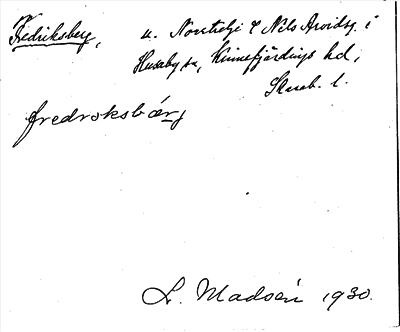 Fredriksberg, u. Norrtelje & Nils Arvidsg. i
Husaby sn, Kinnefjärdings hd,
Skarab. l.
fredroksbärj
L. Madsén 1930.